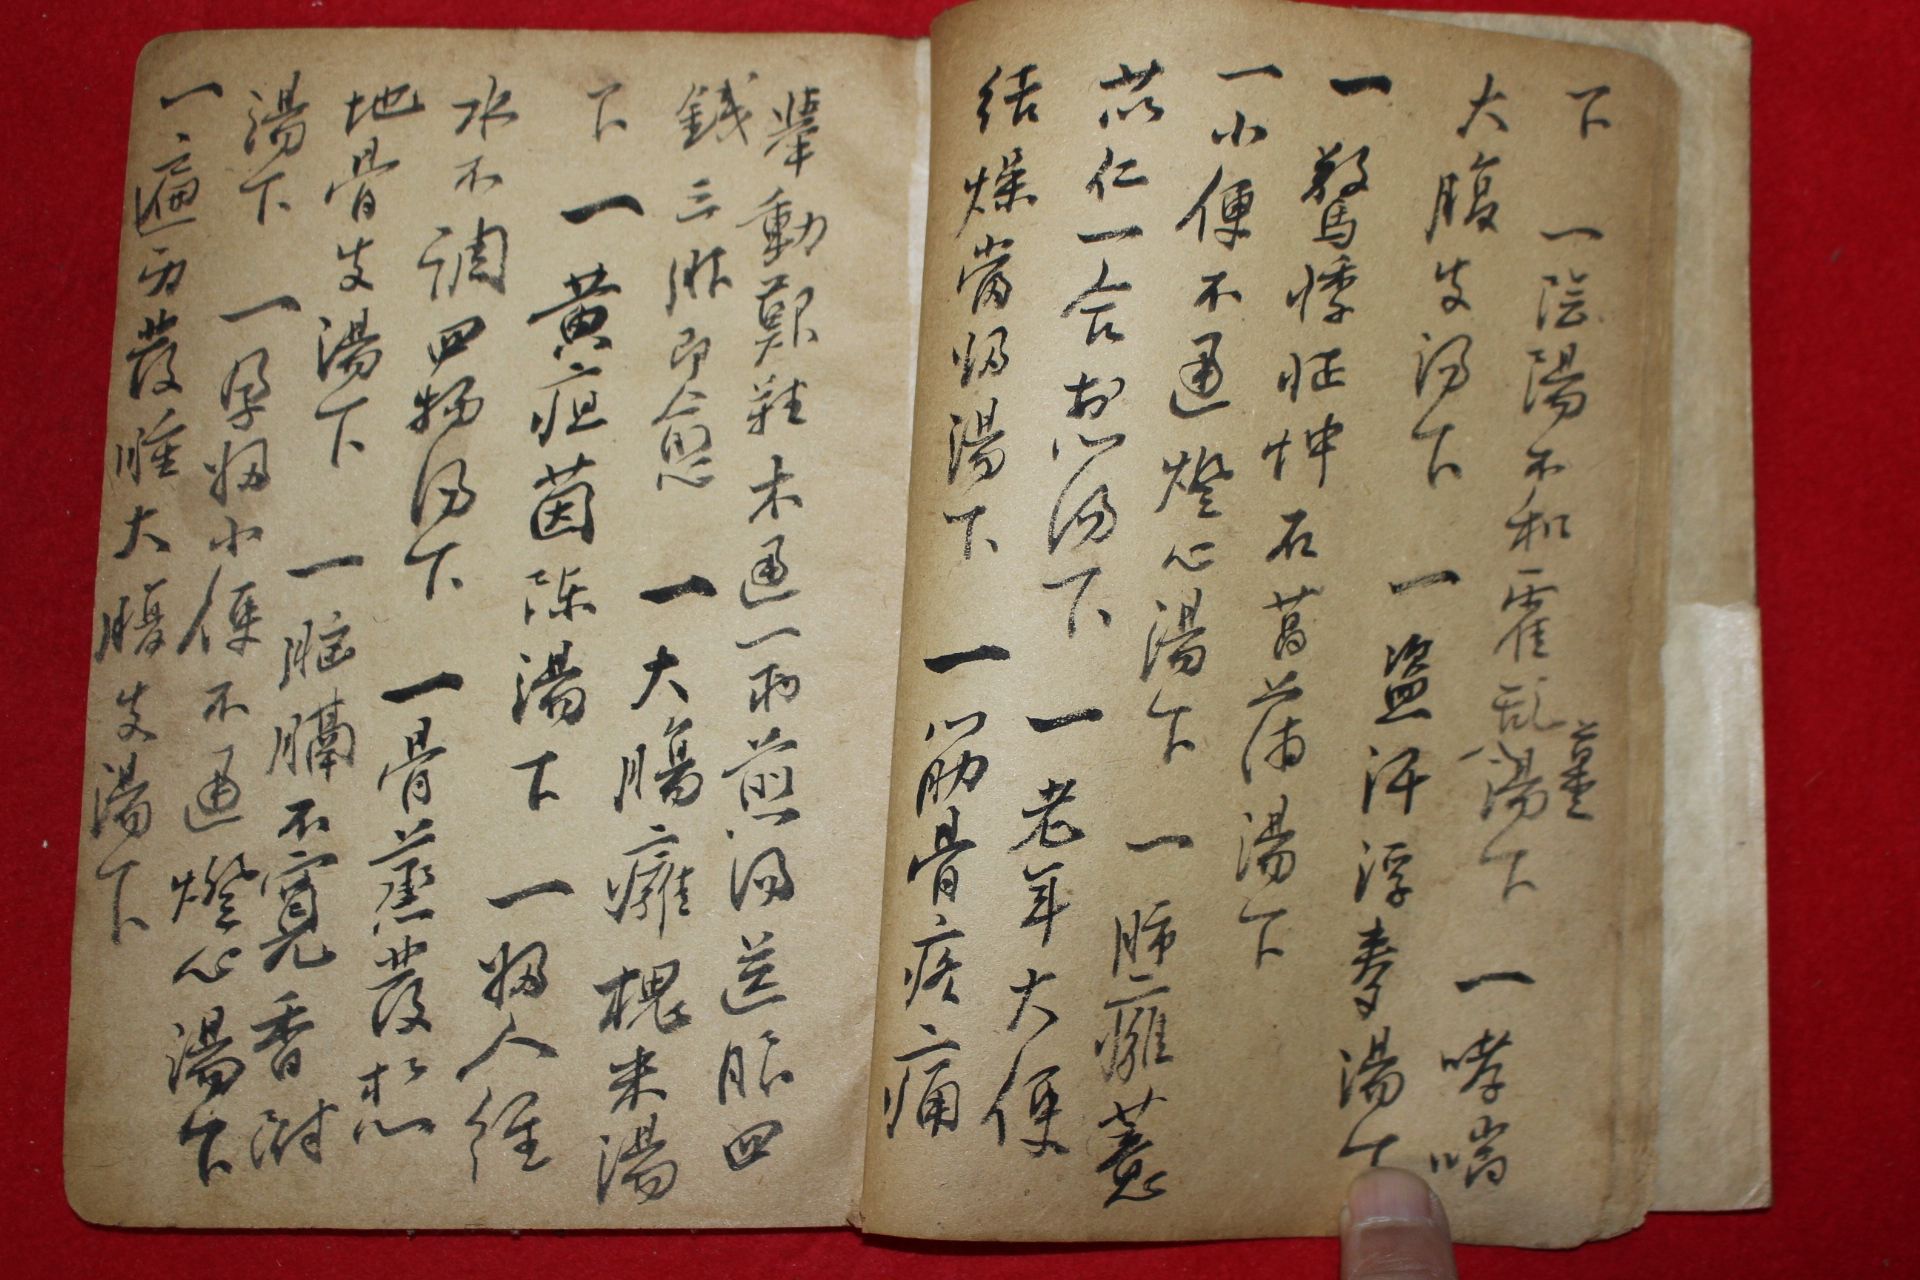 下 一陰陽不和霍乱薑湯下 一哮喘
大腹皮湯下 一盜汗浮麥湯下
一驚悸怔忡石菖蒲湯下
一小便不通燈心湯下 一肺癰薏
苡仁一合 湯下 一老年大便
结燥當归湯下 一筋骨疼痛
舉動艱難木通一兩煎湯送服四
錢三服即愈 一大腸癰槐米湯
下 一黄疸茵陈湯下 一婦人經
水不调四物湯下 一骨蒸發热
地骨皮湯下 一胸膈不寬香附
湯下 一孕婦小便不通燈心湯下
一遍身發腫大腹皮湯下